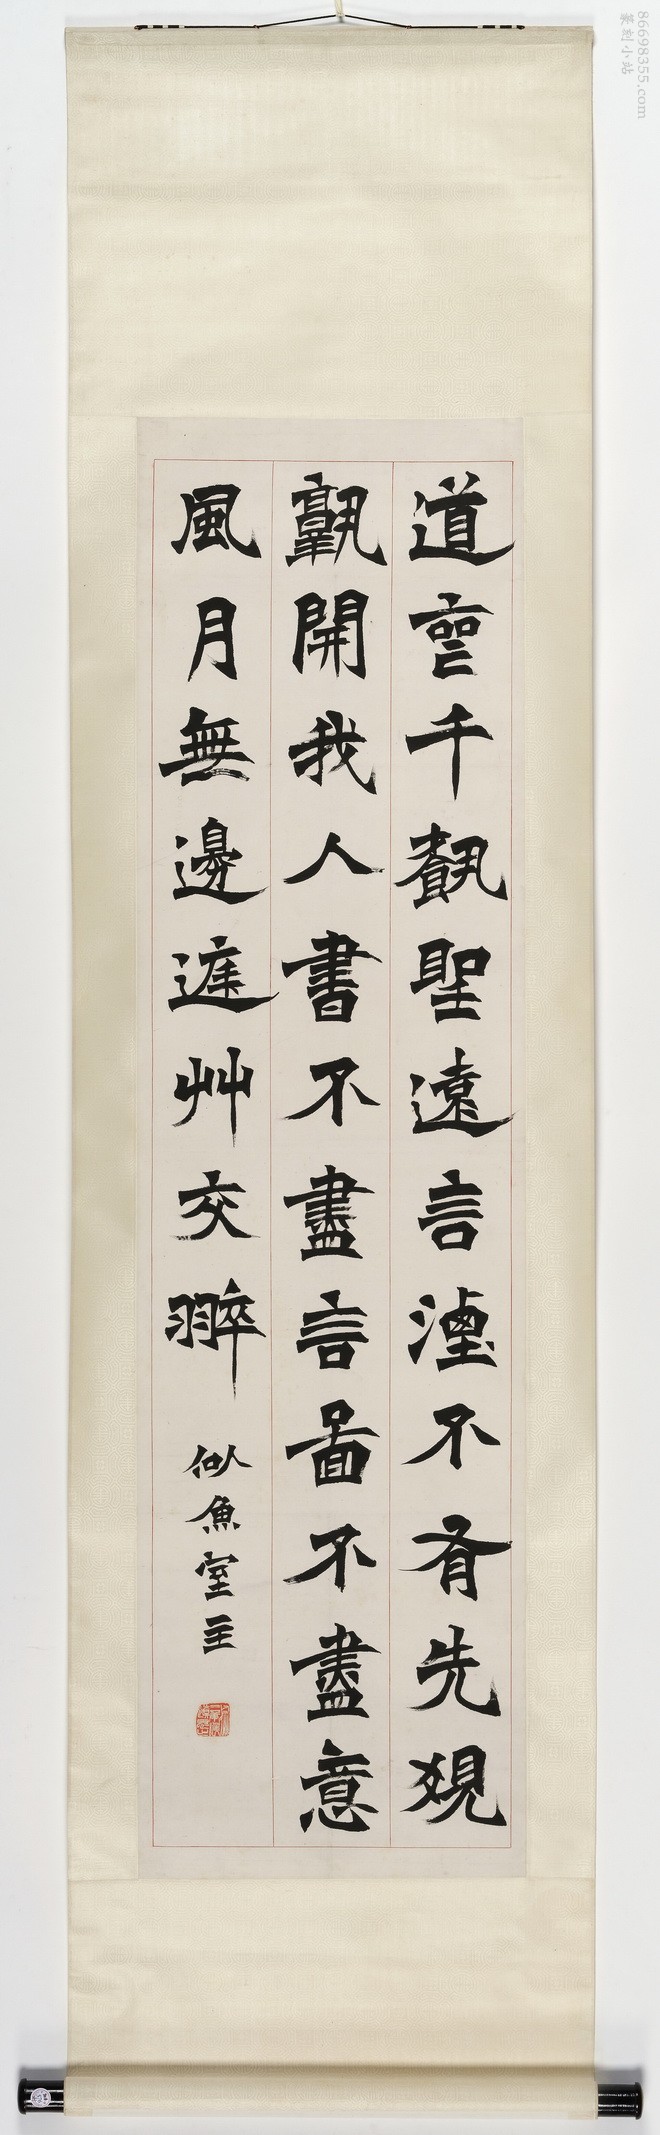 道喪千載聖遠言湮不有先覺
孰開我人書不盡言圖不盡意
風月無邊庭艸交翠
似魚室主
86698355.com
篆刻小站